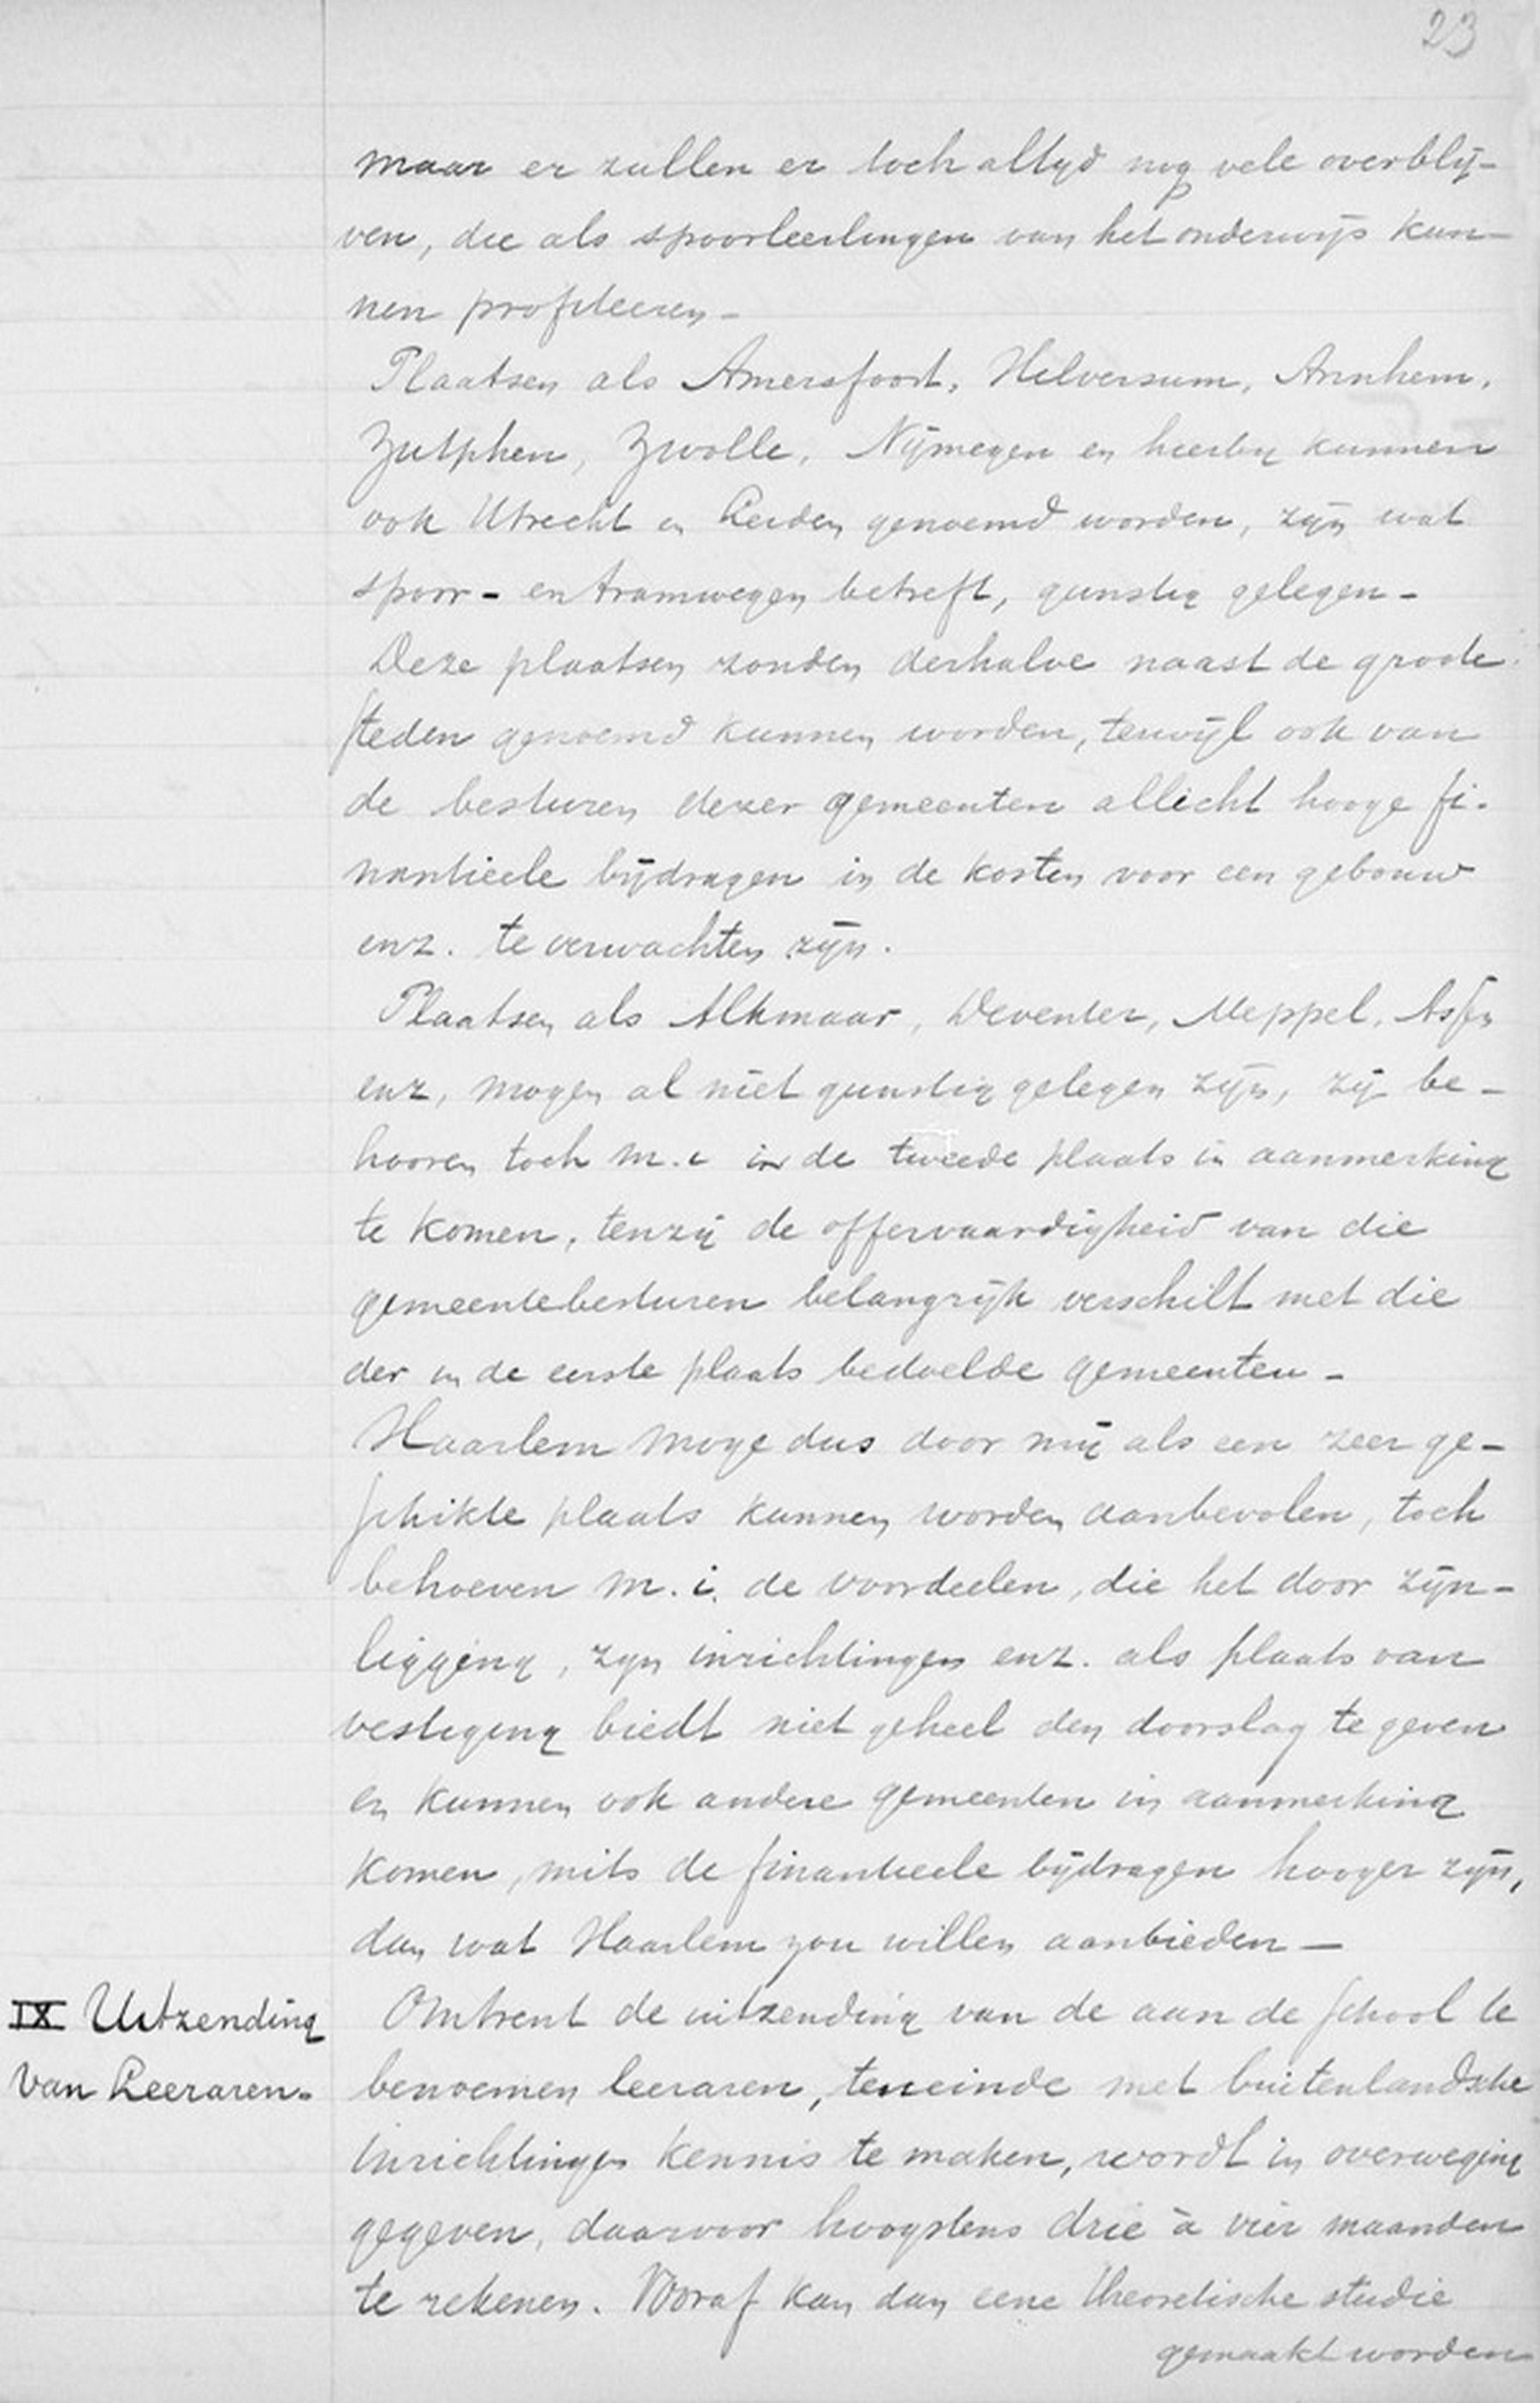 23
maar er zullen er toch altyd nog vele overblij-
ven, die als spoorleerlingen van het onderwijs kun-
nen profiteeren -
Plaatsen als Amersfoort, Hilversum, Arnhem,
Zutphen, Zwolle, Nijmegen en hierby kunnen
ook Utrecht en Leiden genoemd worden, zijn wat
spoor- en tramwegen betreft, gunstig gelegen -
Deze plaatsen zouden derhalve naast de groote
steden genoemd kunnen worden, terwijl ook van
de besturen dezer gemeenten allicht hooge fi-
nantieele bijdragen in de kosten voor een gebouw
enz. te verwachten zijn.
Plaatsen als Alkmaar, Deventer, Meppel, Assen
enz, mogen al niet gunstig gelegen zijn, zij be-
hooren toch m.i in de tweede plaats in aanmerking
te komen, tenzij de offervaardigheid van die
gemeentebesturen belangrijk verschilt met die
der in de eerste plaats bedoelde gemeenten -
Haarlem moge dus door mij als een zeer ge-
schikte plaats kunnen worden aanbevolen, toch
behoeven m.i. de voordeelen, die het door zijn-
ligging, zyn inrichtingen enz. als plaats van
vestiging biedt niet geheel den doorslag te geven
en kunnen ook andere gemeenten in aanmerking
komen, mits de finantieele bijdragen hooger zijn,
dan wat Haarlem zou willen aanbieden -
IX Uitzending
van Leeraren.
Omtrent de uitzending van de aan de school te
benoemen leeraren, teneinde met buitenlandsche
inrichtingen kennis te maken, wordt in overweging
gegeven, daarvoor hoogstens drie à vier maanden
te rekenen. Vooraf kan dan eene theoretische studie
gemaakt worden